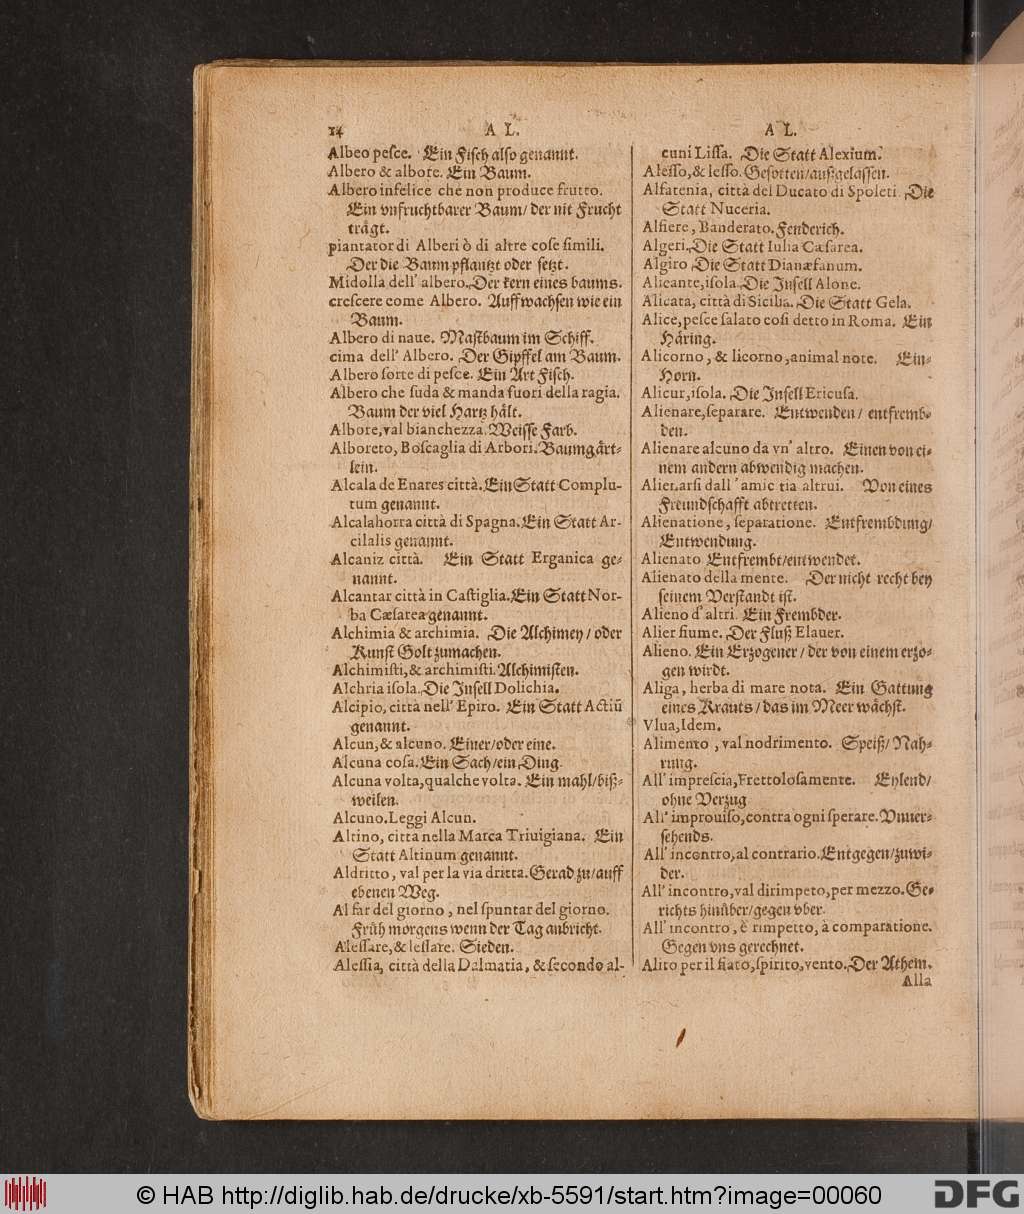 14 A L. A L.
Albeo peſce. Ein Fiſch alſo genannt.
Albero & albore. Ein Baum.
Albero infelice che non produce frutto.
Ein vnfruchtbarer Baum/ der nit Frucht
trägt.
piantator di Alberi ò di altre coſe ſimili.
Der die Baum pflantzt oder ſetzt.
Midolla dell' albero. Der kern eines baums.
creſcere come Albero. Auffwachſen wie ein
Baum.
Albero di naue. Maſtbaum im Schiff.
cima dell' Albero. Der Gipffel am Baum.
Albero ſorte di peſce. Ein Art Fiſch.
Albero che ſuda & manda fuori della ragia.
Baum der viel Hartz hålt.
Albore, val bianchezza. Weiſſe Farb.
Alboreto, Boſcaglia di Arbori. Baumgårt-
lein.
Alcala de Enares città. Ein Statt Complu-
tum genannt.
Alcalahorra città di Spagna. Ein Statt Ar-
cilalis genannt.
Alcaniz città. Ein Statt Erganica ge-
nannt.
Alcantar città in Caſtiglia. Ein Statt Nor-
ba Cæſarea genannt.
Alchimia & archimia. Die Alchimey/ oder
Kunſt Golt zumachen.
Alchimiſti, & archimiſti. Alchimiſten.
Alchria iſola. Die Inſell Dolichia.
Alcipio, città nell' Epiro. Ein Statt Actiũ
genannt.
Alcun, & alcuno. Einer/oder eine.
Alcuna coſa. Ein Sach/ein Ding.
Alcuna volta, qualche volta. Ein mahl/biß-
weilen.
Alcuno. Leggi Alcun.
Altino, citta nella Marca Triuigiana. Ein
Statt Altinum genannt.
Aldritto, val per la via dritta. Gerad zu/auff
ebenen Weg.
Al far del giorno, nel ſpuntar del giorno.
Früh morgens wenn der Tag anbricht.
Aleſſare, & leſſare. Sieden.
Aleſſia, città della Dalmatia, & ſecondo al-
cuni Liſſa. Die Statt Alexium.
Aleſſo, & leſſo. Geſotten/außgelaſſen.
Alfatenia, città del Ducato di Spoleti. Die
Statt Nuceria.
Alfiere, Banderato. Fenderich.
Algeri. Die Statt Iulia Cæſarea.
Algiro Die Statt Dianæfanum.
Alicante, iſola. Die Inſell Alone.
Alicata, città di Sicilia. Die Statt Gela.
Alice, peſce ſalato coſi detto in Roma. Ein
Håring.
Alicorno, & licorno, animal note. Ein-
Horn.
Alicur, iſola. Die Inſell Ericuſa.
Alienare, ſeparare. Entwenden/ entfremb-
den.
Alienare alcuno da vn' altro. Einen von ei-
nem andern abwendig machen.
Alienarſi dall' amicitia altrui. Von eines
Freundſchafft abtretten.
Alienatione, ſeparatione. Entfrembdung/
Entwendung.
Alienato Entfrembt/entwendet.
Alienato della mente. Der nicht recht bey
ſeinem Verſtandt iſt.
Alieno d'altri. Ein Frembder.
Alier fiume. Der Fluß Elauer.
Alieno. Ein Erzogener/ der von einem erzo-
gen wirdt.
Aliga, herba di mare nota. Ein Gattung
eines Krauts/das im Meer wåchſt.
Vlua, Idem.
Alimento, val nodrimento. Speiß/ Nah-
rung.
All' impreſcia, Frettoloſamente. Eylend/
ohne Verzug
All' improuiſo, contra ogni ſperare. Vnuer-
ſehends.
All' incontro, al contrario. Entgegen/zuwi-
der.
All' incontro, val dirimpeto, per mezzo. Ge-
richts hinüber/gegen vber.
All' incontro, è rimpetto, à comparatione.
Gegen vns gerechnet.
Alito per il fiato, ſpirito, vento. Der Athem.
Alla
© HAB http://diglib.hab.de/drucke/xb-5591/start.htm?image=00060
DFG